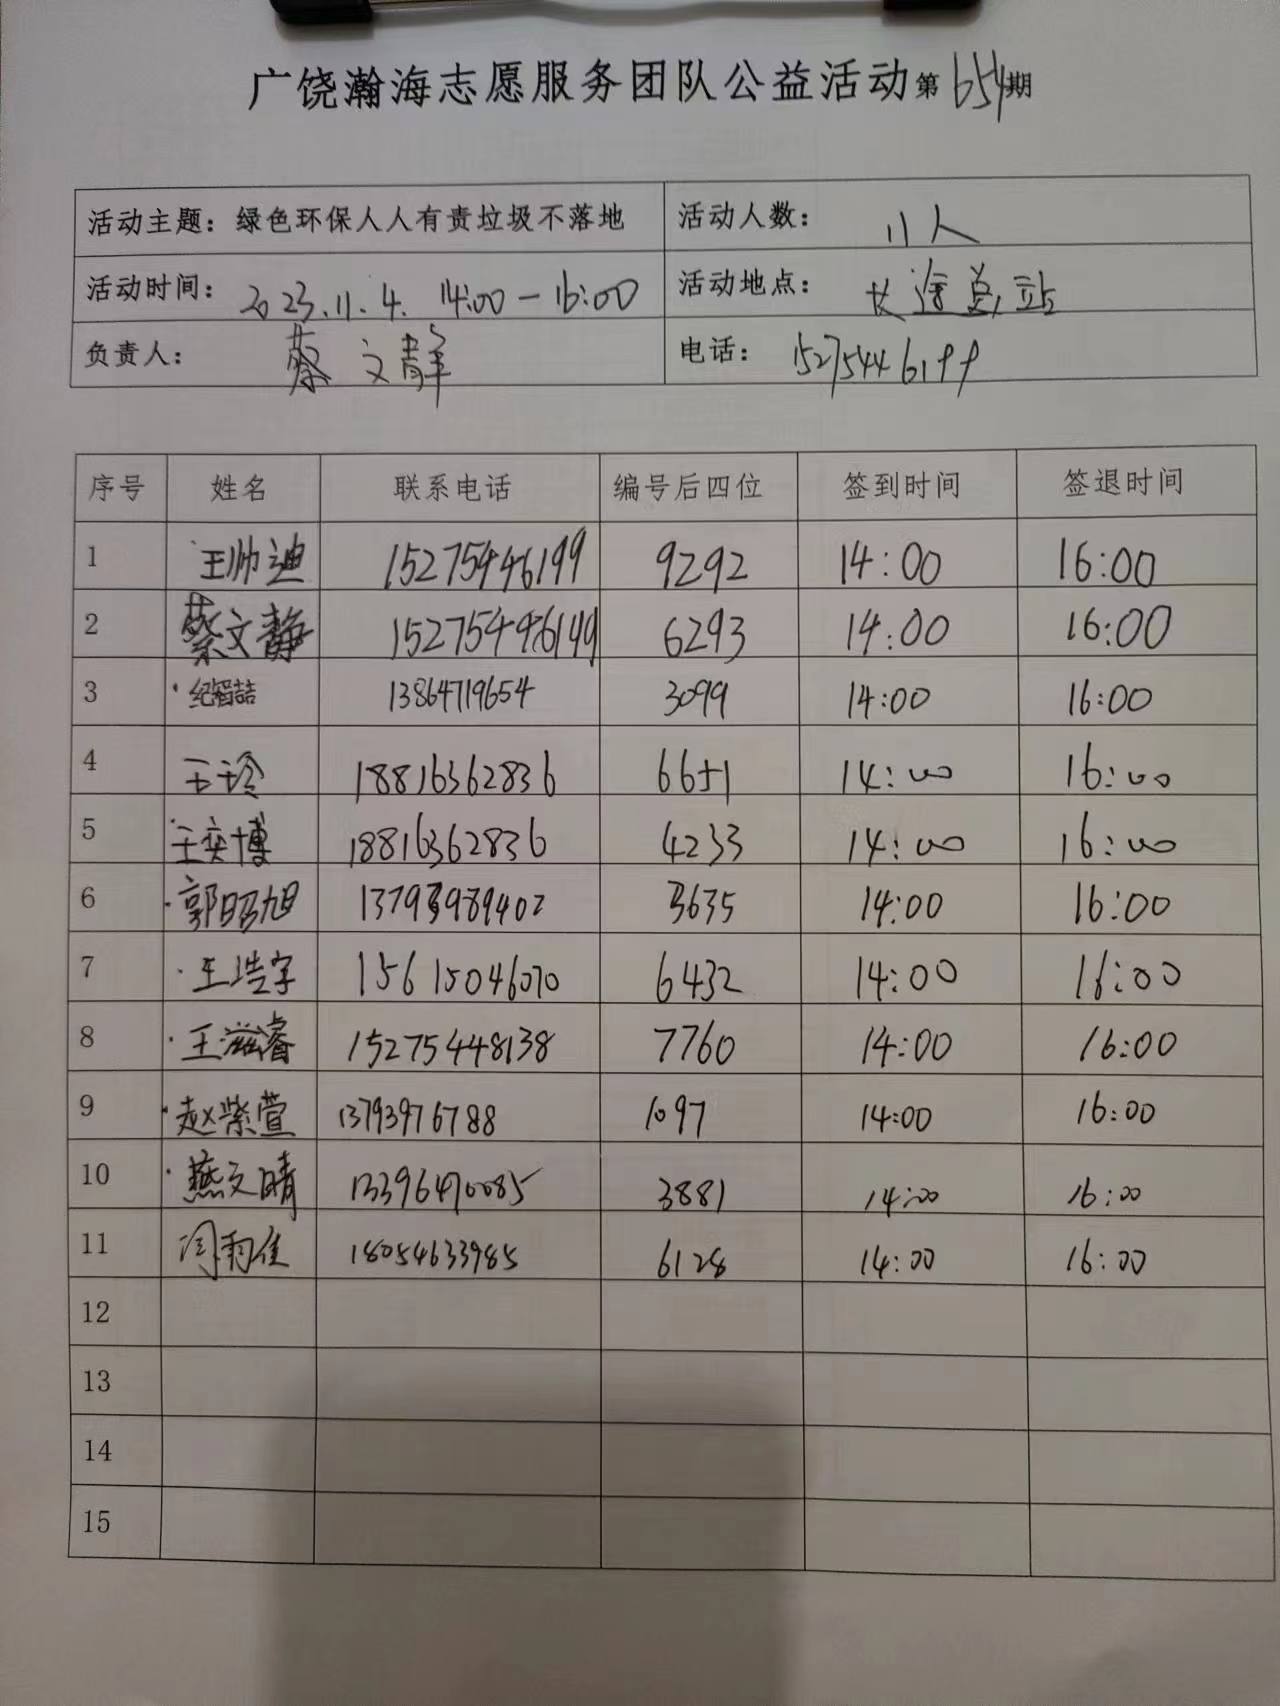 广饶瀚海志愿服务团队公益活动第654期
活动主题：绿色环保人人有责垃圾不落地 活动人数： 11人
活动时间： 2023.11.4. 14:00-16:00 活动地点： 长途总站
负责人： 蔡文静 电话： 15275446199
序号 姓名 联系电话 编号后四位 签到时间 签退时间
1 王帅迪 15275446199 9292 14:00 16:00
2 蔡文静 15275446199 6293 14:00 16:00
3 13864719654 3099 14:00 16:00
4 王玲 18816362836 6651 14:00 16:00
5 王奕博 18816362836 4233 14:00 16:00
6 郭昭旭 13793989402 3635 14:00 16:00
7 王浩宇 15615046070 6432 14:00 16:00
8 王滋睿 15275448138 7760 14:00 16:00
9 赵紫萱 13793976788 1097 14:00 16:00
10 燕文晴 13396470085 3881 14:00 16:00
11 闫雨佳 18054633985 6128 14:00 16:00
12
13
14
15